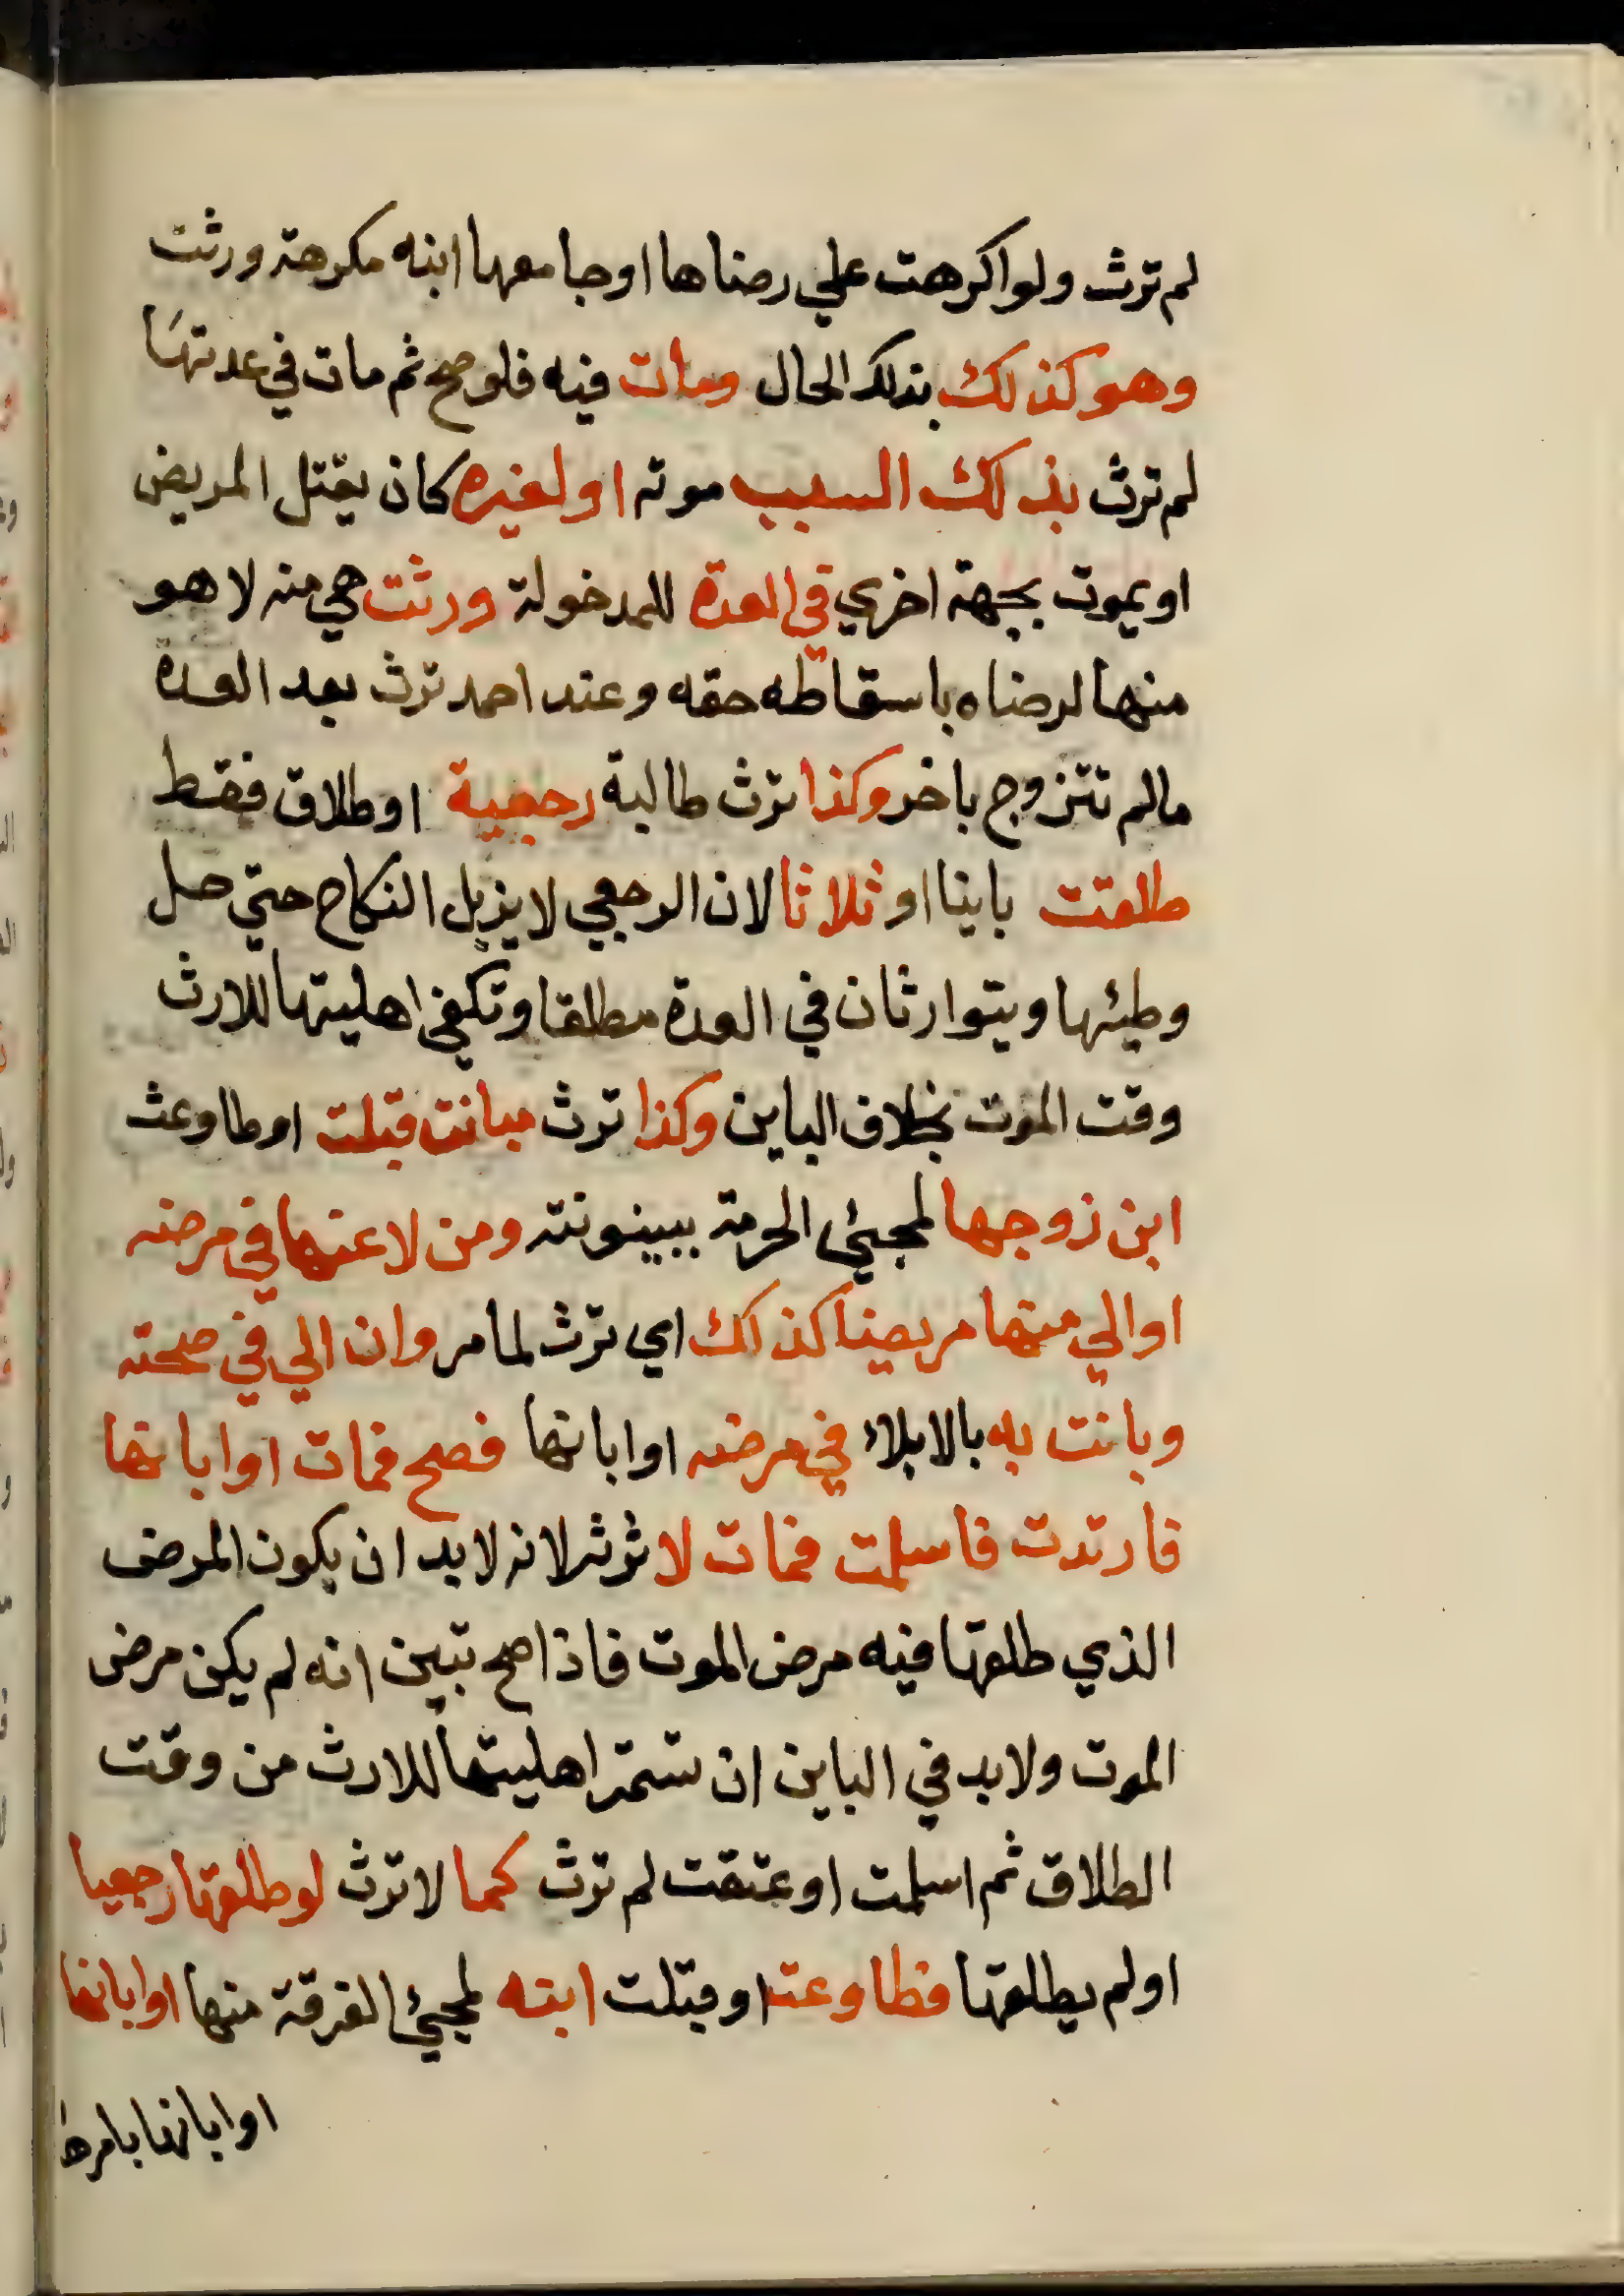 لم ترث ولو اكرهت علي رضاها او جامعها ابنه مكرهة ورثت
وهو كذلك بذلك الحال ومات فيه فلو صح ثم مات في عدتها
لم ترث بذلك السبب موته او لغيره كان يقتل المريض
او يموت بجهة اخري في العدة للمدخولة ورثت هي منه لا هو
منها لرضاه باسقاطه حقه وعند احمد ترث بعد العدة
مالم تتزوج باخر وكذا ترث طالبة رجعية او طلاق فقط
طلقت باينا او ثلاثا لان الرجعي لا يزيل النكاح حتي حل
وطئها ويتوارثان في العدة مطلقا وتكفي اهليتها للارث
وقت الموت بخلاف الباين وكذا ترث مبانت قبلت او طاوعث
ابن زوجها لمجيئ الحرمة ببينونته ومن لاعنها في مرضه
او الي منها مريضا كذلك اي ترث لما مر وان الي في صحته
وبانت به بالايلاء في مرضه او ابانها فصح فمات او ابانها
فارتدت فاسلمت فمات لا ترثه لانه لابد ان يكون المرض
الذي طلقها فيه مرض الموت فاذا صح تبين انه لم يكن مرض
الموت ولابد في الباين ان تستمر اهليتها للارث من وقت
الطلاق ثم اسلمت او عتقت لم ترث كما لا ترث لو طلقها رجعيا
او لم يطلقها فطاوعته او قبلت ابنه لمجيئ الفرقة منها او ابانها
او ابانها بامرها